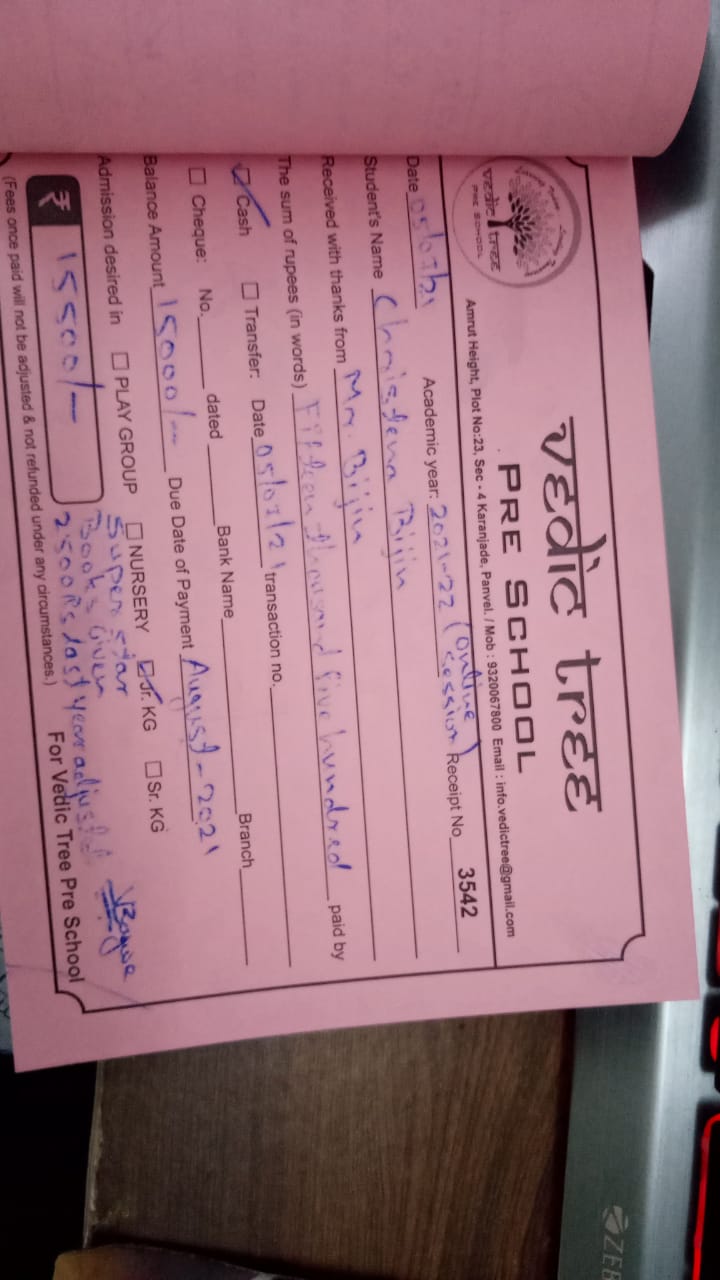 vedic tree
PRE SCHOOL
vedic tree
PRE SCHOOL
Amrut Height, Plot No:23, Sec - 4 Karanjade, Panvel. / Mob : 9320067800 Email : info.vedictree@gmail.com
Date Academic year: 2021-22 (online session) Receipt No 3542
Student's Name Bijin
Received with thanks from Mr. Bijin
The sum of rupees (in words) Fifteen thousand five hundred paid by
Cash Transfer: Date 05/07/21 transaction no.
Cheque: No. dated Bank Name Branch
Balance Amount 15000/- Due Date of Payment August - 2021
Admission desired in PLAY GROUP NURSERY Jr. KG Sr. KG
Super star
Books Given
₹ 15500/- 2500Rs last year adjusted
For Vedic Tree Pre School
(Fees once paid will not be adjusted & not refunded under any circumstances.)
ZEB